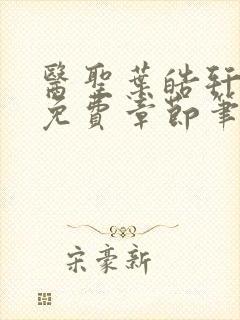 醫聖葉皓軒
免費章節筆
宋豪新